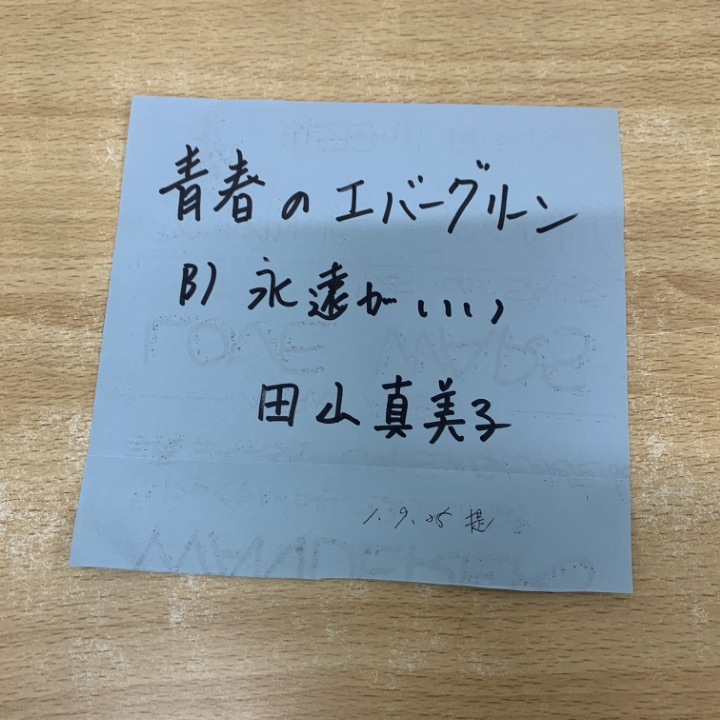 青春のエバーグリーン
B) 永遠がいい
田山真美子
1.9.25 提